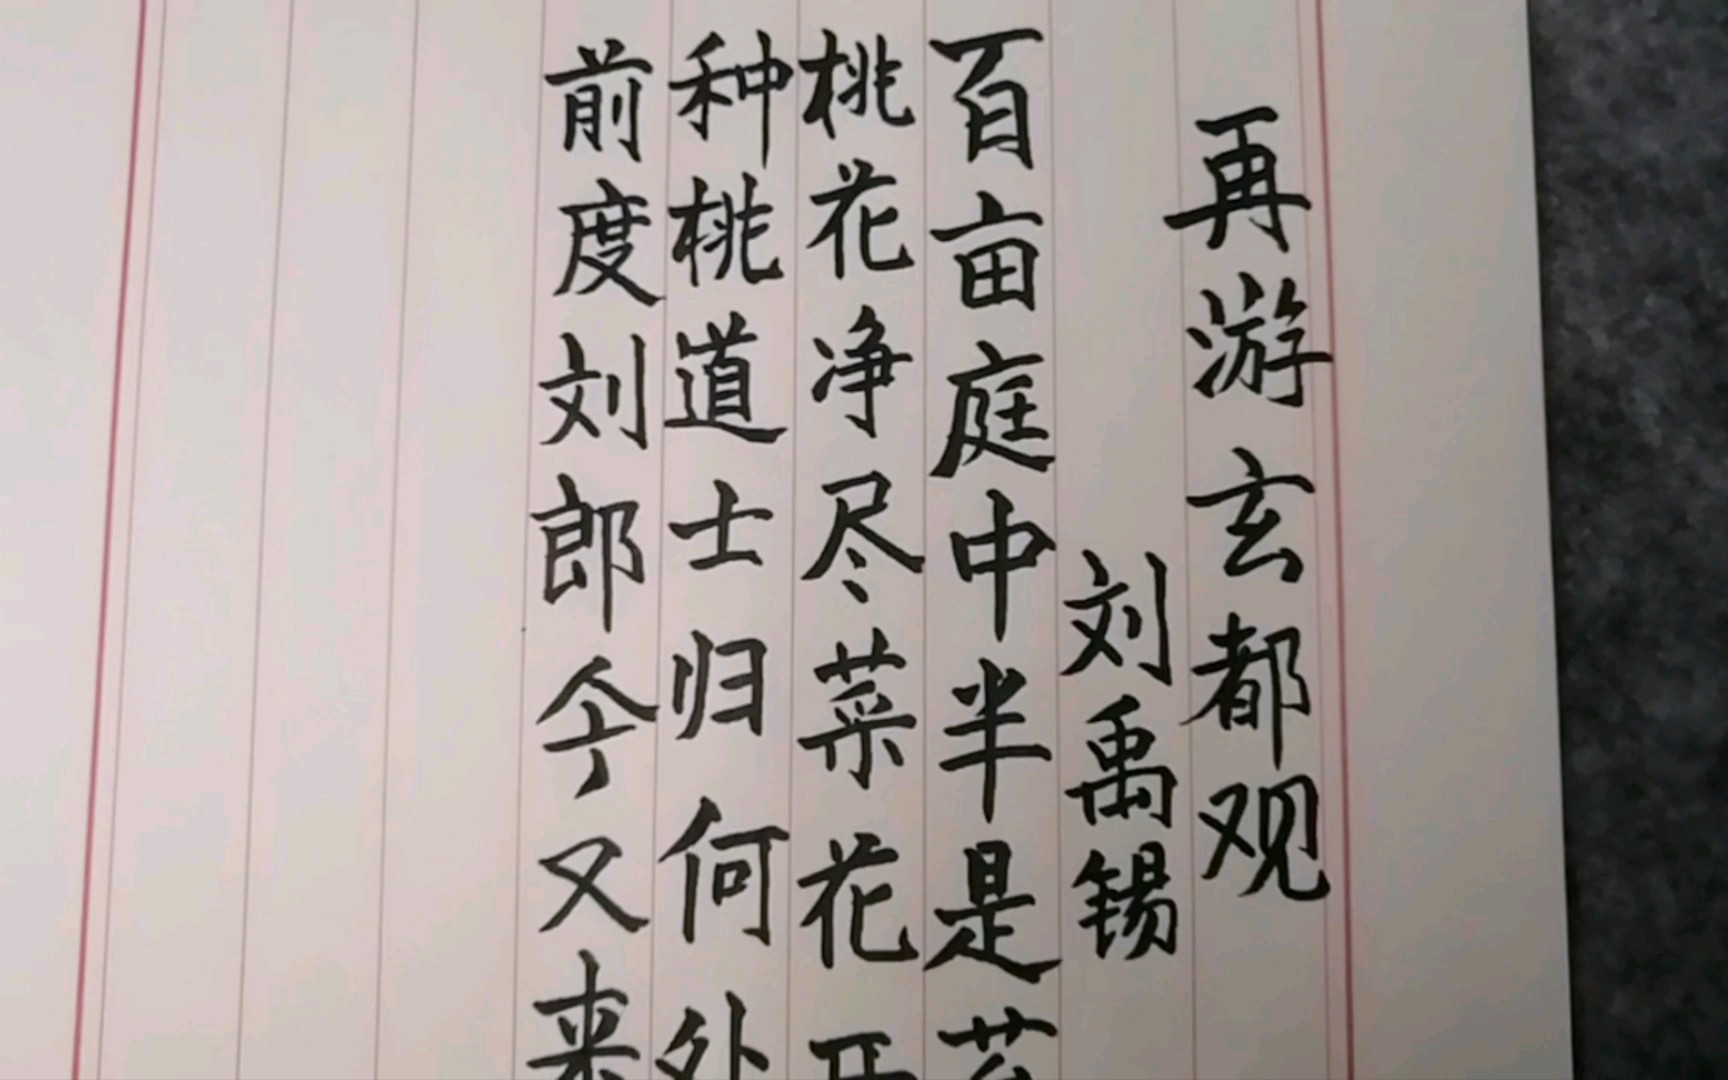 再游玄都观
刘禹锡
百亩庭中半是苔
桃花净尽菜花开
种桃道士归何处
前度刘郎今又来